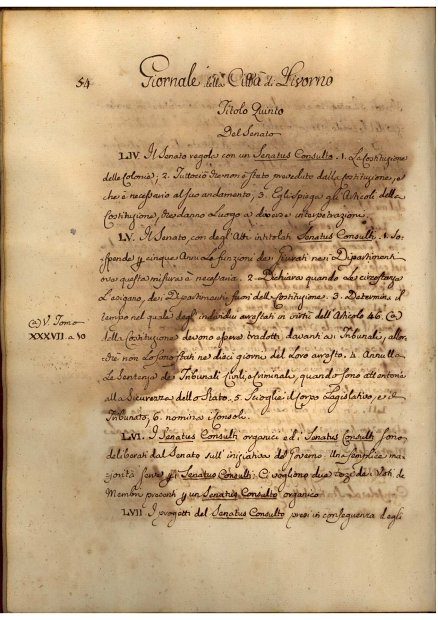 54 Giornale della Città di Livorno
Titolo Quinto
Del Senato
LIV. Il Senato regola con un Senatus Consulto. 1. La Costituzione
delle Colonie; 2. Tuttociò che non è stato preveduto dalla Costituzione, e
che è necessario al suo andamento; 3. Egli Spiega gli Articoli della
Costituzione, che danno Luogo a diverse interpetrazioni.
LV. Il Senato, con degli Atti intitolati Senatus Consulti. 1. So-
spende p cinque Anni Le funzioni dei Giurati nei Dipartimenti
ove questa misura è necessaria. 2. Dichiara quando Le circostanze
L'esigano, dei Dipartimenti fuori della Costituzione. 3. Determina il
tempo nel quale degl' individui arrestati in virtù dell'Articolo 46. (a)
(a) V. Tomo
XXXVII. a 10
della Costituzione devono essere tradotti davanti ai Tribunali, allor-
chè non Lo sono stati ne' dieci giorni del Loro arresto. 4. Annulla
Le Sentenze de' Tribunali Civili, e Criminali, quando sono attentorie
alla Sicurezza dello Stato. 5. Scioglie il Corpo Legislativo, e il
Tribunato; 6. nomina i Consoli.
LVI. I Senatus Consulti organici ed i Senatus Consulti sono
deliberati dal Senato sull' iniziativa del Governo. Una Semplice mag-
giorità serve p i Senatus Consulti; Ci vogliono due terzi de' Voti de'
Membri presenti p un Senatus Consulto organico.
LVII. I progetti del Senatus Consulto presi in conseguenza degli